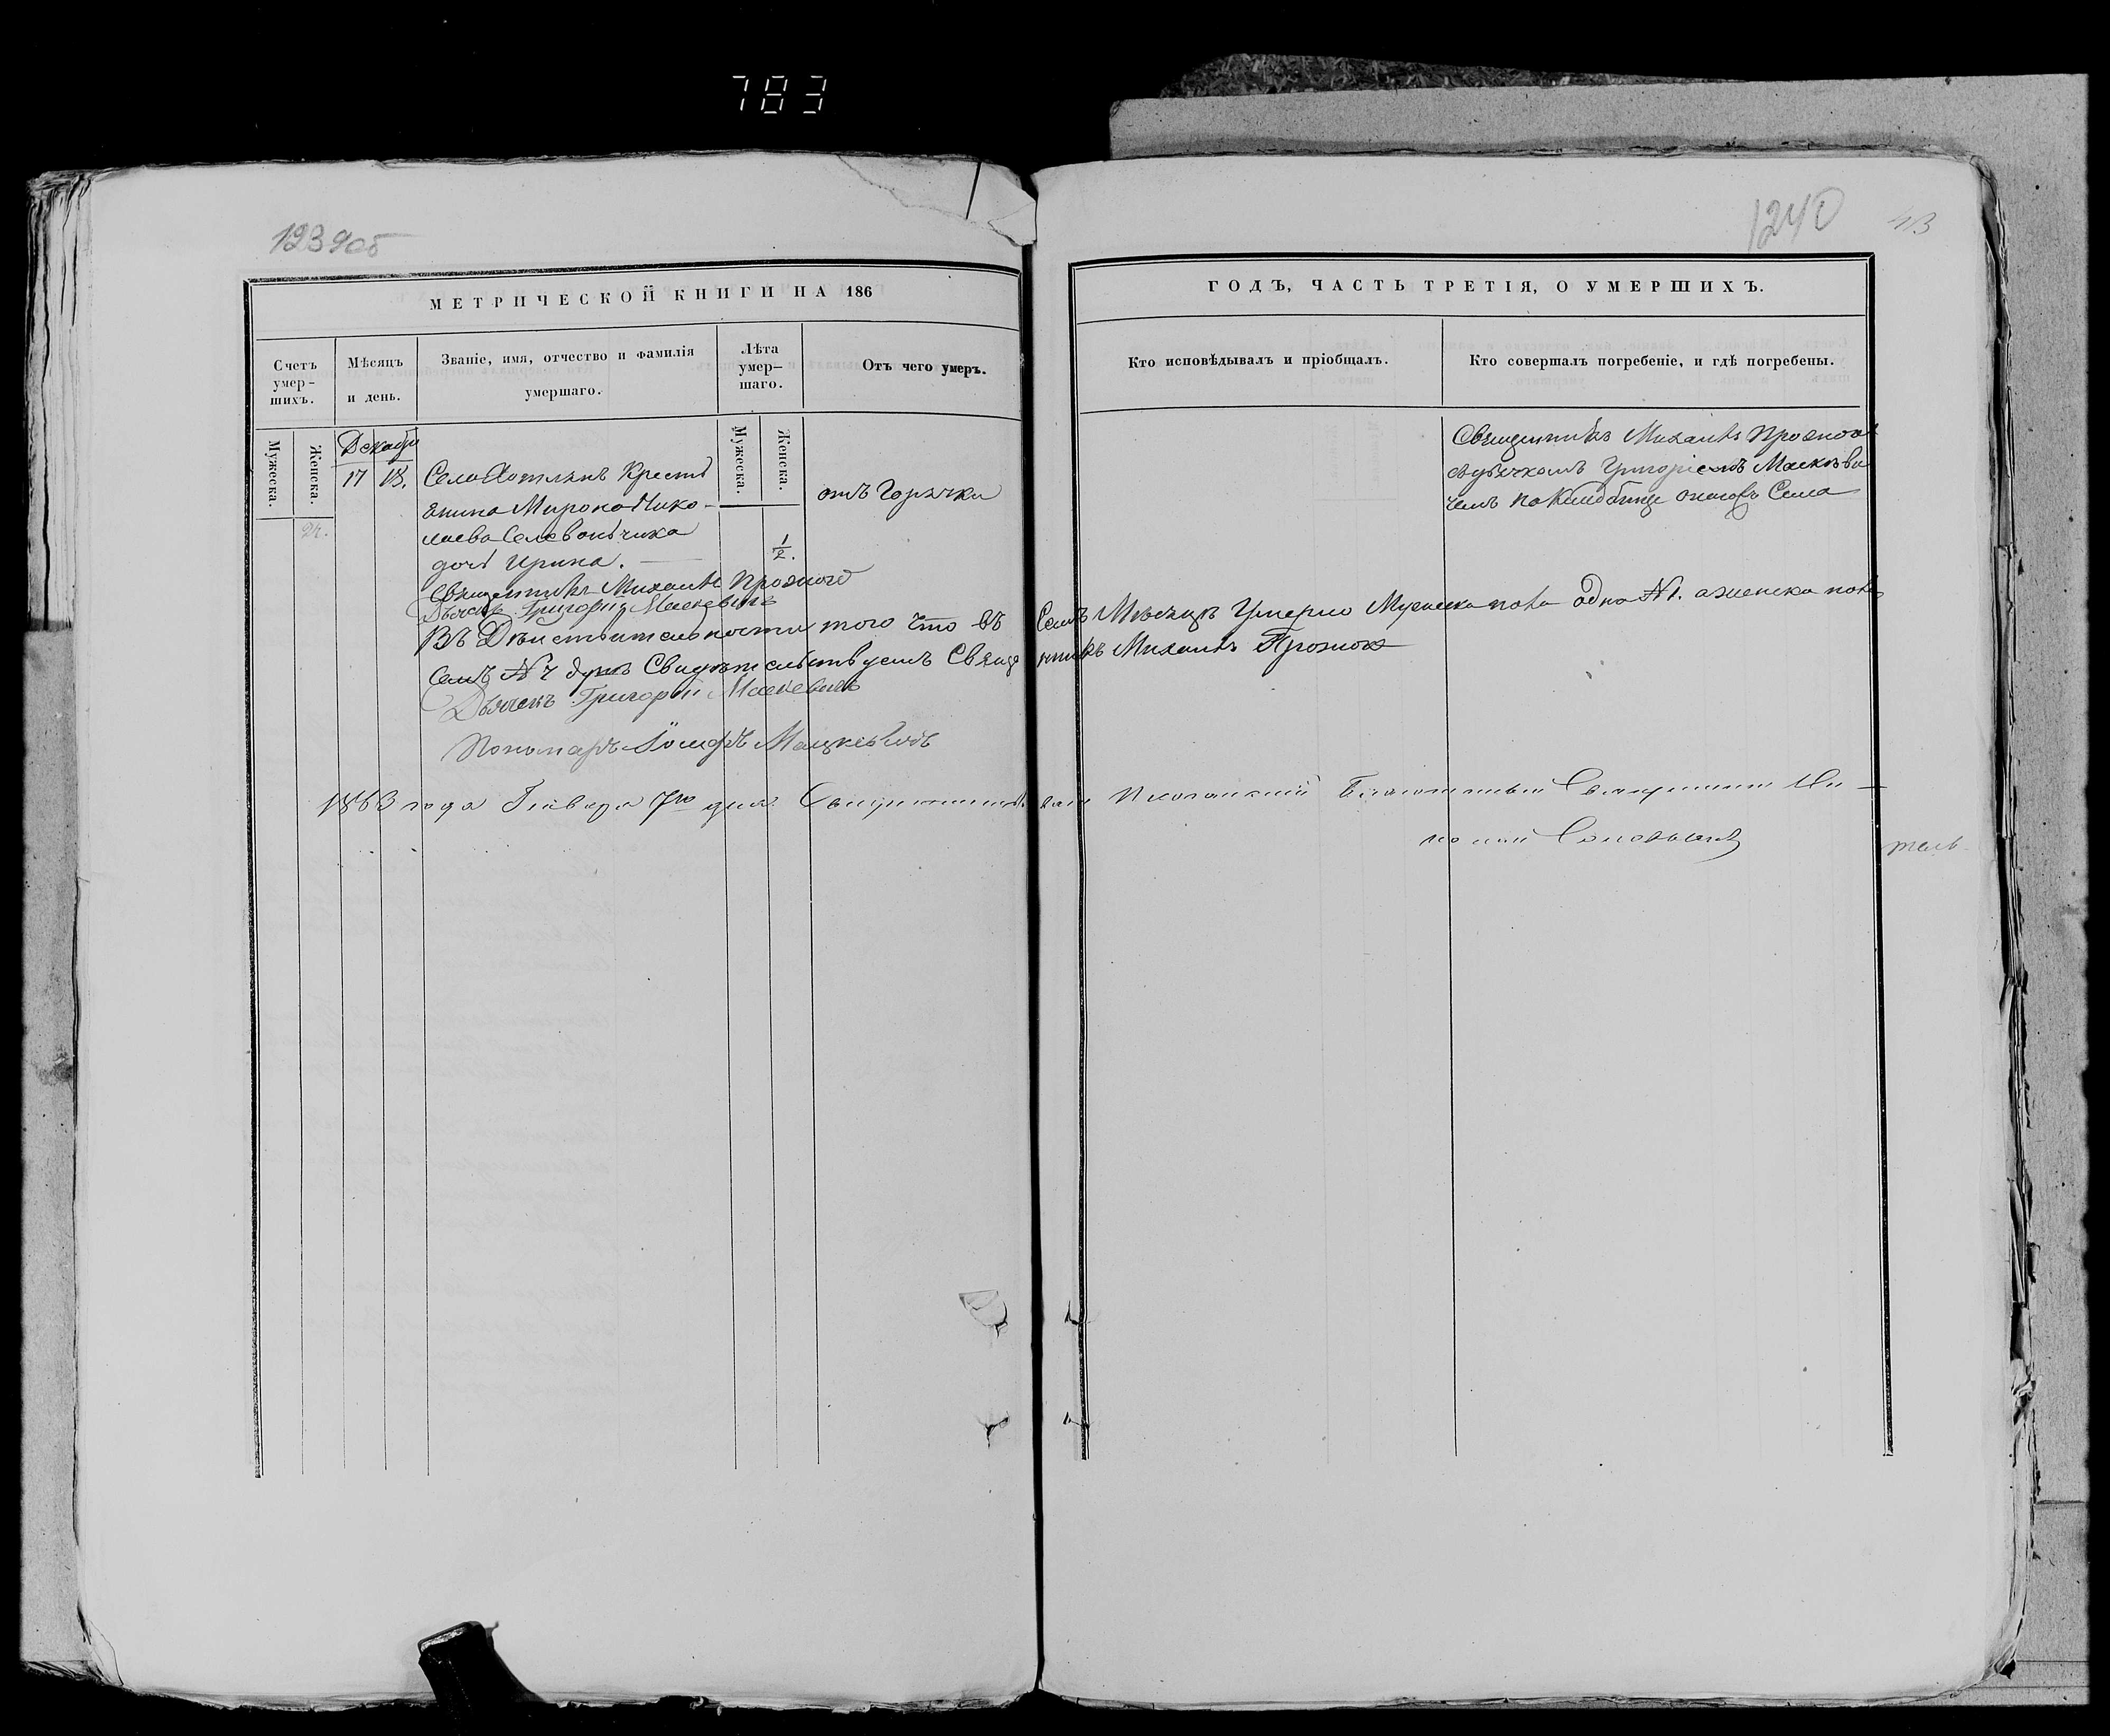 783
1239об
1240
43
МЕТРИЧЕСКОЙ КНИГИ НА 186
ГОДЪ, ЧАСТЬ ТРЕТІЯ, О УМЕРШИХЪ.
Счетъ умер-шихъ.
Мѣсяцъ и день.
Званіе, имя, отчество и фамилія
умершаго.
Лѣта умер-шаго.
Отъ чего умеръ.
Кто исповѣдывалъ и пріобщалъ.
Кто совершалъ погребеніе, и гдѣ погребены.
Мужеска.
Женска.
Мужеска.
Женска.
Декабр
24.
17 18.
Села Хотлянъ Кресть
янина Мирона Нико-
лаева Селевончика
дочь Ирина.
1/2.
отъ Горячки
Священникъ Михаилъ
съ дьячкомъ Григоріемъ Маскеви
чемъ на Кладбище Села
Священникъ Михаилъ
Дьячекъ Григорій Маскевичъ
Въ Дѣйствительности того что въ Семъ Мѣсяцѣ Умерло Мужеска пола одна №1. а женска пола
Семъ № 7 душъ Свидѣтельствуемъ Священникъ Михаилъ
Дьячекъ Григорій Маскевичъ
Пономарь Іосифъ Мацкевичъ
1863 года Января 7го дня Благочинный